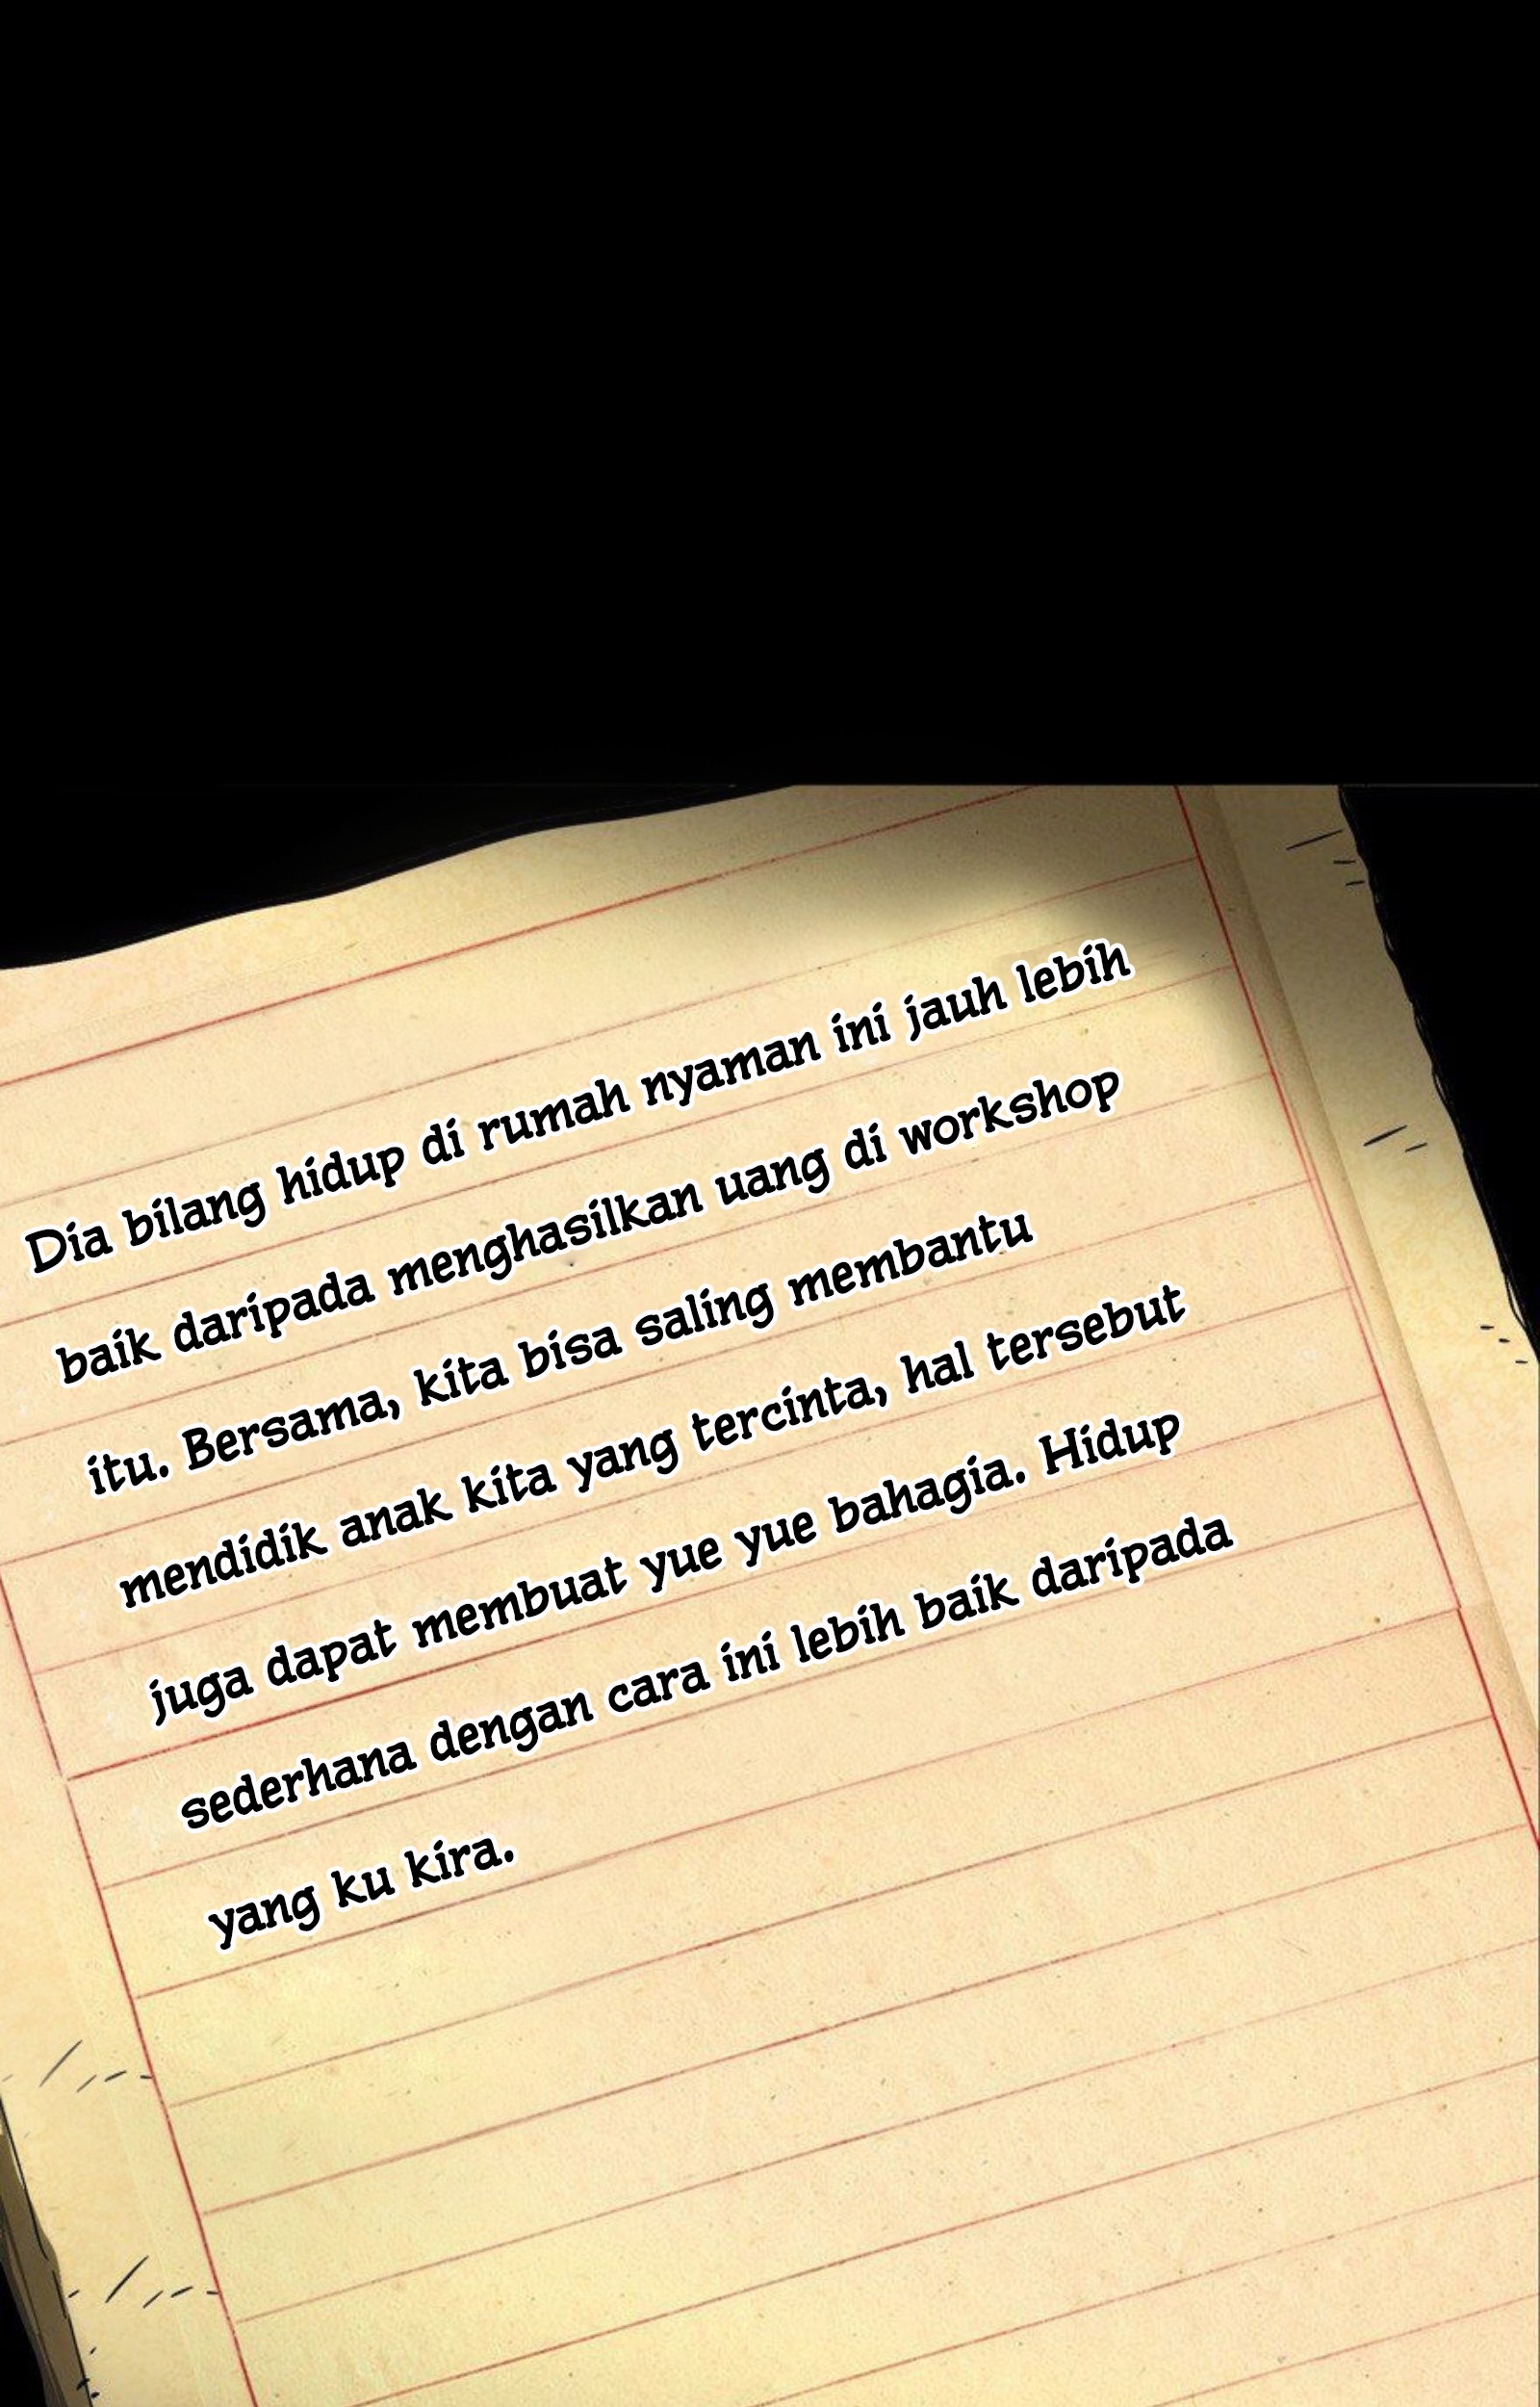 Dia bilang hidup di rumah nyaman ini jauh lebih
baik daripada menghasilkan uang di workshop
itu. Bersama, kita bisa saling membantu
mendidik anak kita yang tercinta, hal tersebut
juga dapat membuat yue yue bahagia. Hidup
sederhana dengan cara ini lebih baik daripada
yang ku kira.